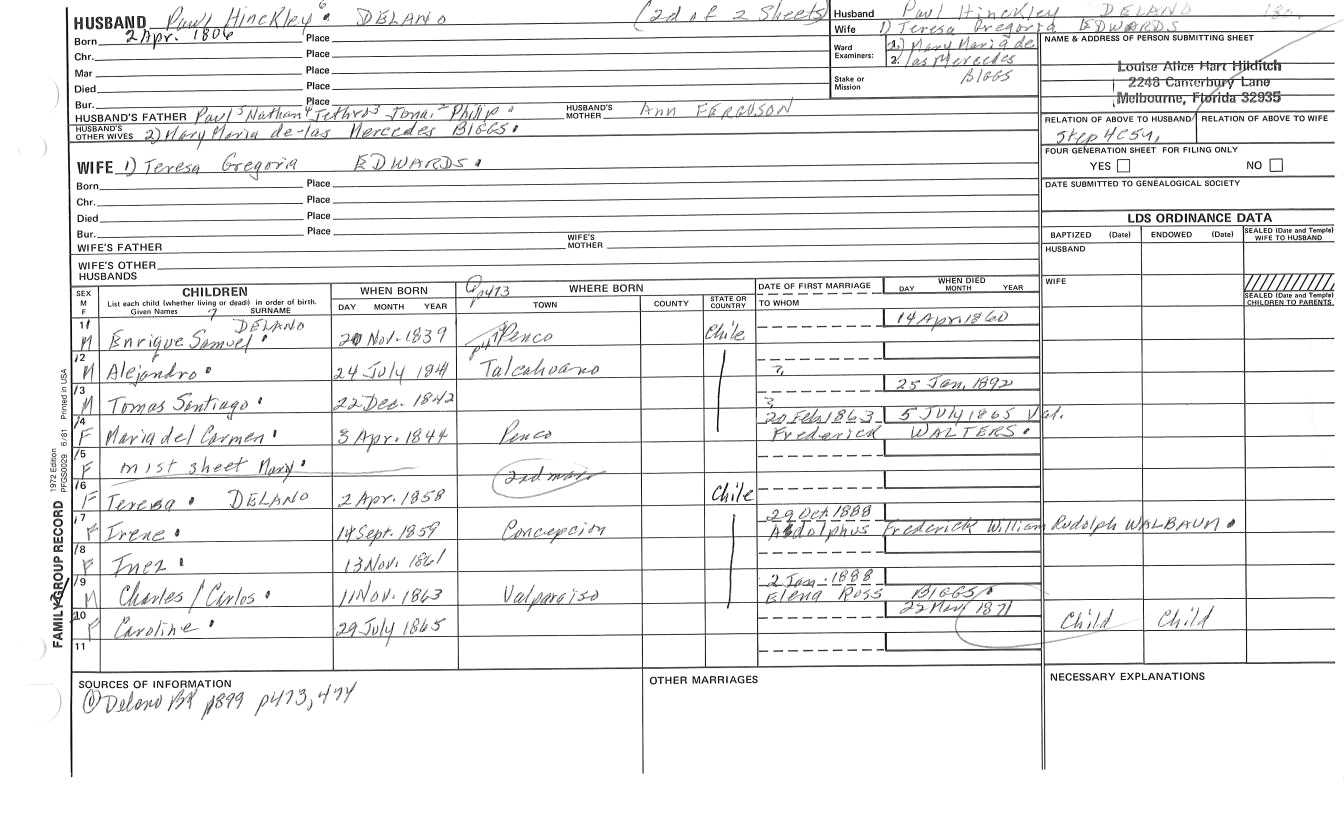 HUSBAND Paul Hinckley 6 DELANO (2d of 2 Sheets)
Born 2 Apr. 1806 Place
Chr. Place
Mar Place
Died Place
Bur. Place
HUSBAND'S FATHER Paul 5 Nathan 4 Jethro 3 Jona. 2 Philip HUSBAND'S MOTHER Ann FERGUSON
HUSBAND'S OTHER WIVES 2) Mary Maria de-las Mercedes BIGGS
WIFE 1) Teresa Gregoria EDWARDS
Born Place
Chr. Place
Died Place
Bur. Place
WIFE'S FATHER WIFE'S MOTHER
WIFE'S OTHER HUSBANDS
Husband Paul Hinckley DELANO
Wife 1) Teresa Gregoria EDWARDS
Ward Examiners: 1.) Mary Maria de
2. las Mercedes
Stake or Mission BIGGS
NAME & ADDRESS OF PERSON SUBMITTING SHEET
Louise Alice Hart Hilditch
2248 Canterbury Lane
Melbourne, Florida 32935
RELATION OF ABOVE TO HUSBAND RELATION OF ABOVE TO WIFE
FOUR GENERATION SHEET FOR FILING ONLY
YES NO
DATE SUBMITTED TO GENEALOGICAL SOCIETY
LDS ORDINANCE DATA
BAPTIZED (Date) ENDOWED (Date) SEALED (Date and Temple) WIFE TO HUSBAND
HUSBAND
WIFE
SEALED (Date and Temple) CHILDREN TO PARENTS
SEX M F CHILDREN WHEN BORN p473 WHERE BORN DATE OF FIRST MARRIAGE WHEN DIED
List each child (whether living or dead) in order of birth.
Given Names 7 SURNAME DAY MONTH YEAR TOWN COUNTY STATE OR COUNTRY TO WHOM DAY MONTH YEAR
1 M Enrique Samuel DELANO 20 Nov. 1839 Penco Chile 14 Apr. 1860
2 M Alejandro 24 July 1841 Talcahuano
3 M Tomas Santiago 22 Dec. 1842 25 Jan, 1892
4 F Maria del Carmen 3 Apr. 1844 Penco 20 Feb. 1863 5 July 1865 Val.
Frederick WALTERS
5 F on 1st sheet Mary 2nd marr
6 F Teresa DELANO 2 Apr. 1858 Chile
7 F Irene 14 Sept. 1859 Concepcion 29 Oct. 1888
Adolphus Frederick William Rudolph WALBAUM
8 F Inez 13 Nov. 1861
9 M Charles / Carlos 11 Nov. 1863 Valparaiso 2 Jan. 1888
Elena Ross BIGGS
10 F Caroline 29 July 1865 22 May 1871 Child Child
11
SOURCES OF INFORMATION
① Delano Bk p899 p473, 474
OTHER MARRIAGES
NECESSARY EXPLANATIONS
FAMILY GROUP RECORD 1972 Edition PFGS0029 6/81 Printed in USA